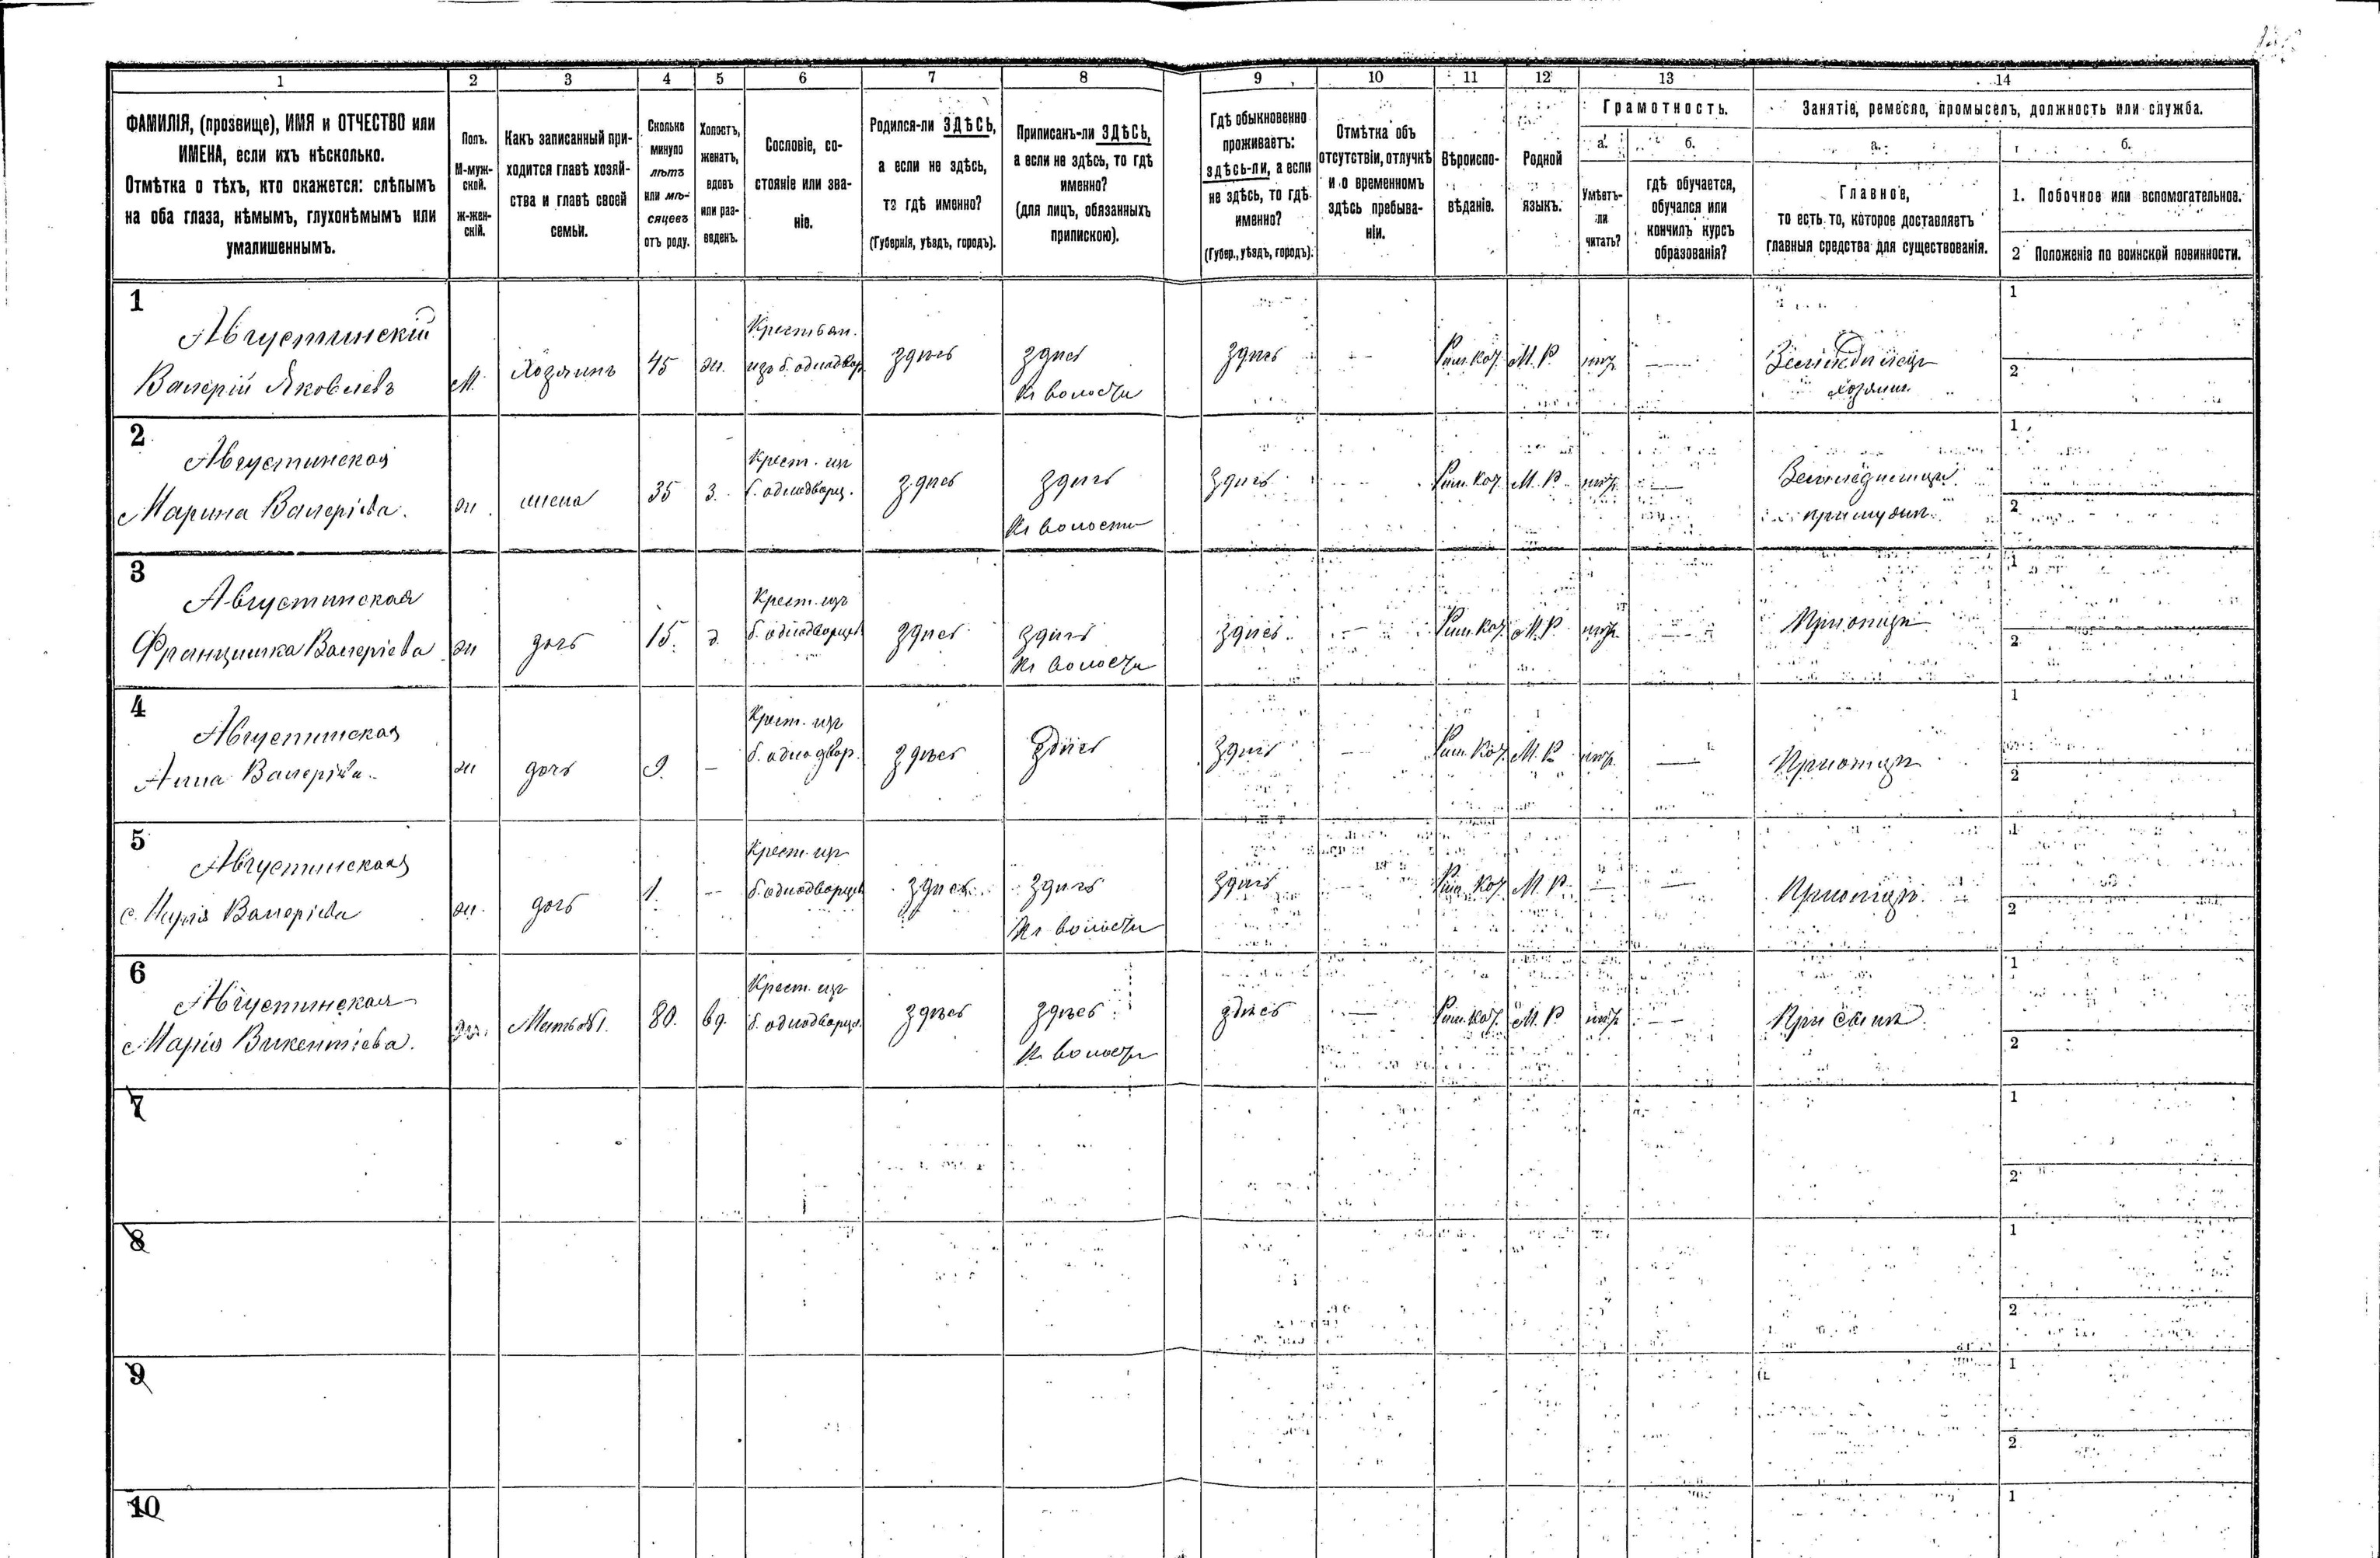 1 2 3 4 5 6 7 8 9 10 11 12 13 14
ФАМИЛІЯ, (прозвище), ИМЯ и ОТЧЕСТВО или
ИМЕНА, если ихъ нѣсколько.
Отмѣтка о тѣхъ, кто окажется: слѣпымъ
на оба глаза, нѣмымъ, глухонѣмымъ или
умалишеннымъ.
Полъ.
М-муж-
ской.
ж-жен-
скій.
Какъ записанный при-
ходится главѣ хозяй-
ства и главѣ своей
семьи.
Сколько
минуло
лѣтъ
или мѣ-
сяцевъ
отъ роду.
Холостъ,
женатъ,
вдовъ
или раз-
веденъ.
Сословіе, со-
стояніе или зва-
ніе.
Родился-ли ЗДѢСЬ,
а если не здѣсь,
то гдѣ именно?
(Губернія, уѣздъ, городъ).
Приписанъ-ли ЗДѢСЬ,
а если не здѣсь, то гдѣ
именно?
(для лицъ, обязанныхъ
припискою).
Гдѣ обыкновенно
проживаетъ:
здѣсь-ли, а если
не здѣсь, то гдѣ
именно?
(Губер., уѣздъ, городъ).
Отмѣтка объ
отсутствіи, отлучкѣ
и о временномъ
здѣсь пребыва-
ніи.
Вѣроиспо-
вѣданіе.
Родной
языкъ.
Грамотность.
а.
Умѣетъ-
ли
читать?
б.
гдѣ обучается,
обучался или
кончилъ курсъ
образованія?
Занятіе, ремесло, промыселъ, должность или служба.
а.
Главное,
то есть то, которое доставляетъ
главныя средства для существованія.
б.
1. Побочное или вспомогательное.
2 Положеніе по воинской повинности.
1
Августинскій
Валерій Яковлевъ
М.
Хозяинъ
45
ж.
Крестьян.
изъ б. однодвор.
здѣсь
здѣсь
волости
здѣсь
—
Рим. Кат.
М. Р.
—
Земледѣлец
хозяин.
1
2
2
Августинская
Марина Валеріева.
ж.
жена
35
з.
Крест. из
б. однодворц.
здѣсь
здѣсь
волости
здѣсь
—
Рим. Кат.
М. Р.
—
при мужѣ
1
2
3
Августинская
Францишка Валеріева
ж
дочь
15.
д.
Крест. изъ
б. однодворцев
здѣсь
здѣсь
волости
здѣсь
—
Рим. Кат.
М. Р.
—
При отцѣ
1
2
4
Августинская
Анна Валеріева.
ж
дочь
9.
—
Крест. изъ
б. однодвор.
здѣсь
здѣсь
здѣсь
—
Рим. Кат.
М. Р.
—
При отцѣ
1
2
5
Августинская
Валеріева
ж.
дочь
1.
—
Крест. изъ
б. однодворцев
здѣсь
здѣсь
волости
здѣсь
—
Рим. Кат.
М. Р.
—
—
При отцѣ
1
2
6
Августинская
Марія Викентіева.
ж.
Мать
80.
вд.
Крест. изъ
б. однодворце.
здѣсь
здѣсь
волости
здѣсь
—
Рим. Кат.
М. Р
—
При сынѣ
1
2
7
1
2
8
1
2
9
1
2
10
1